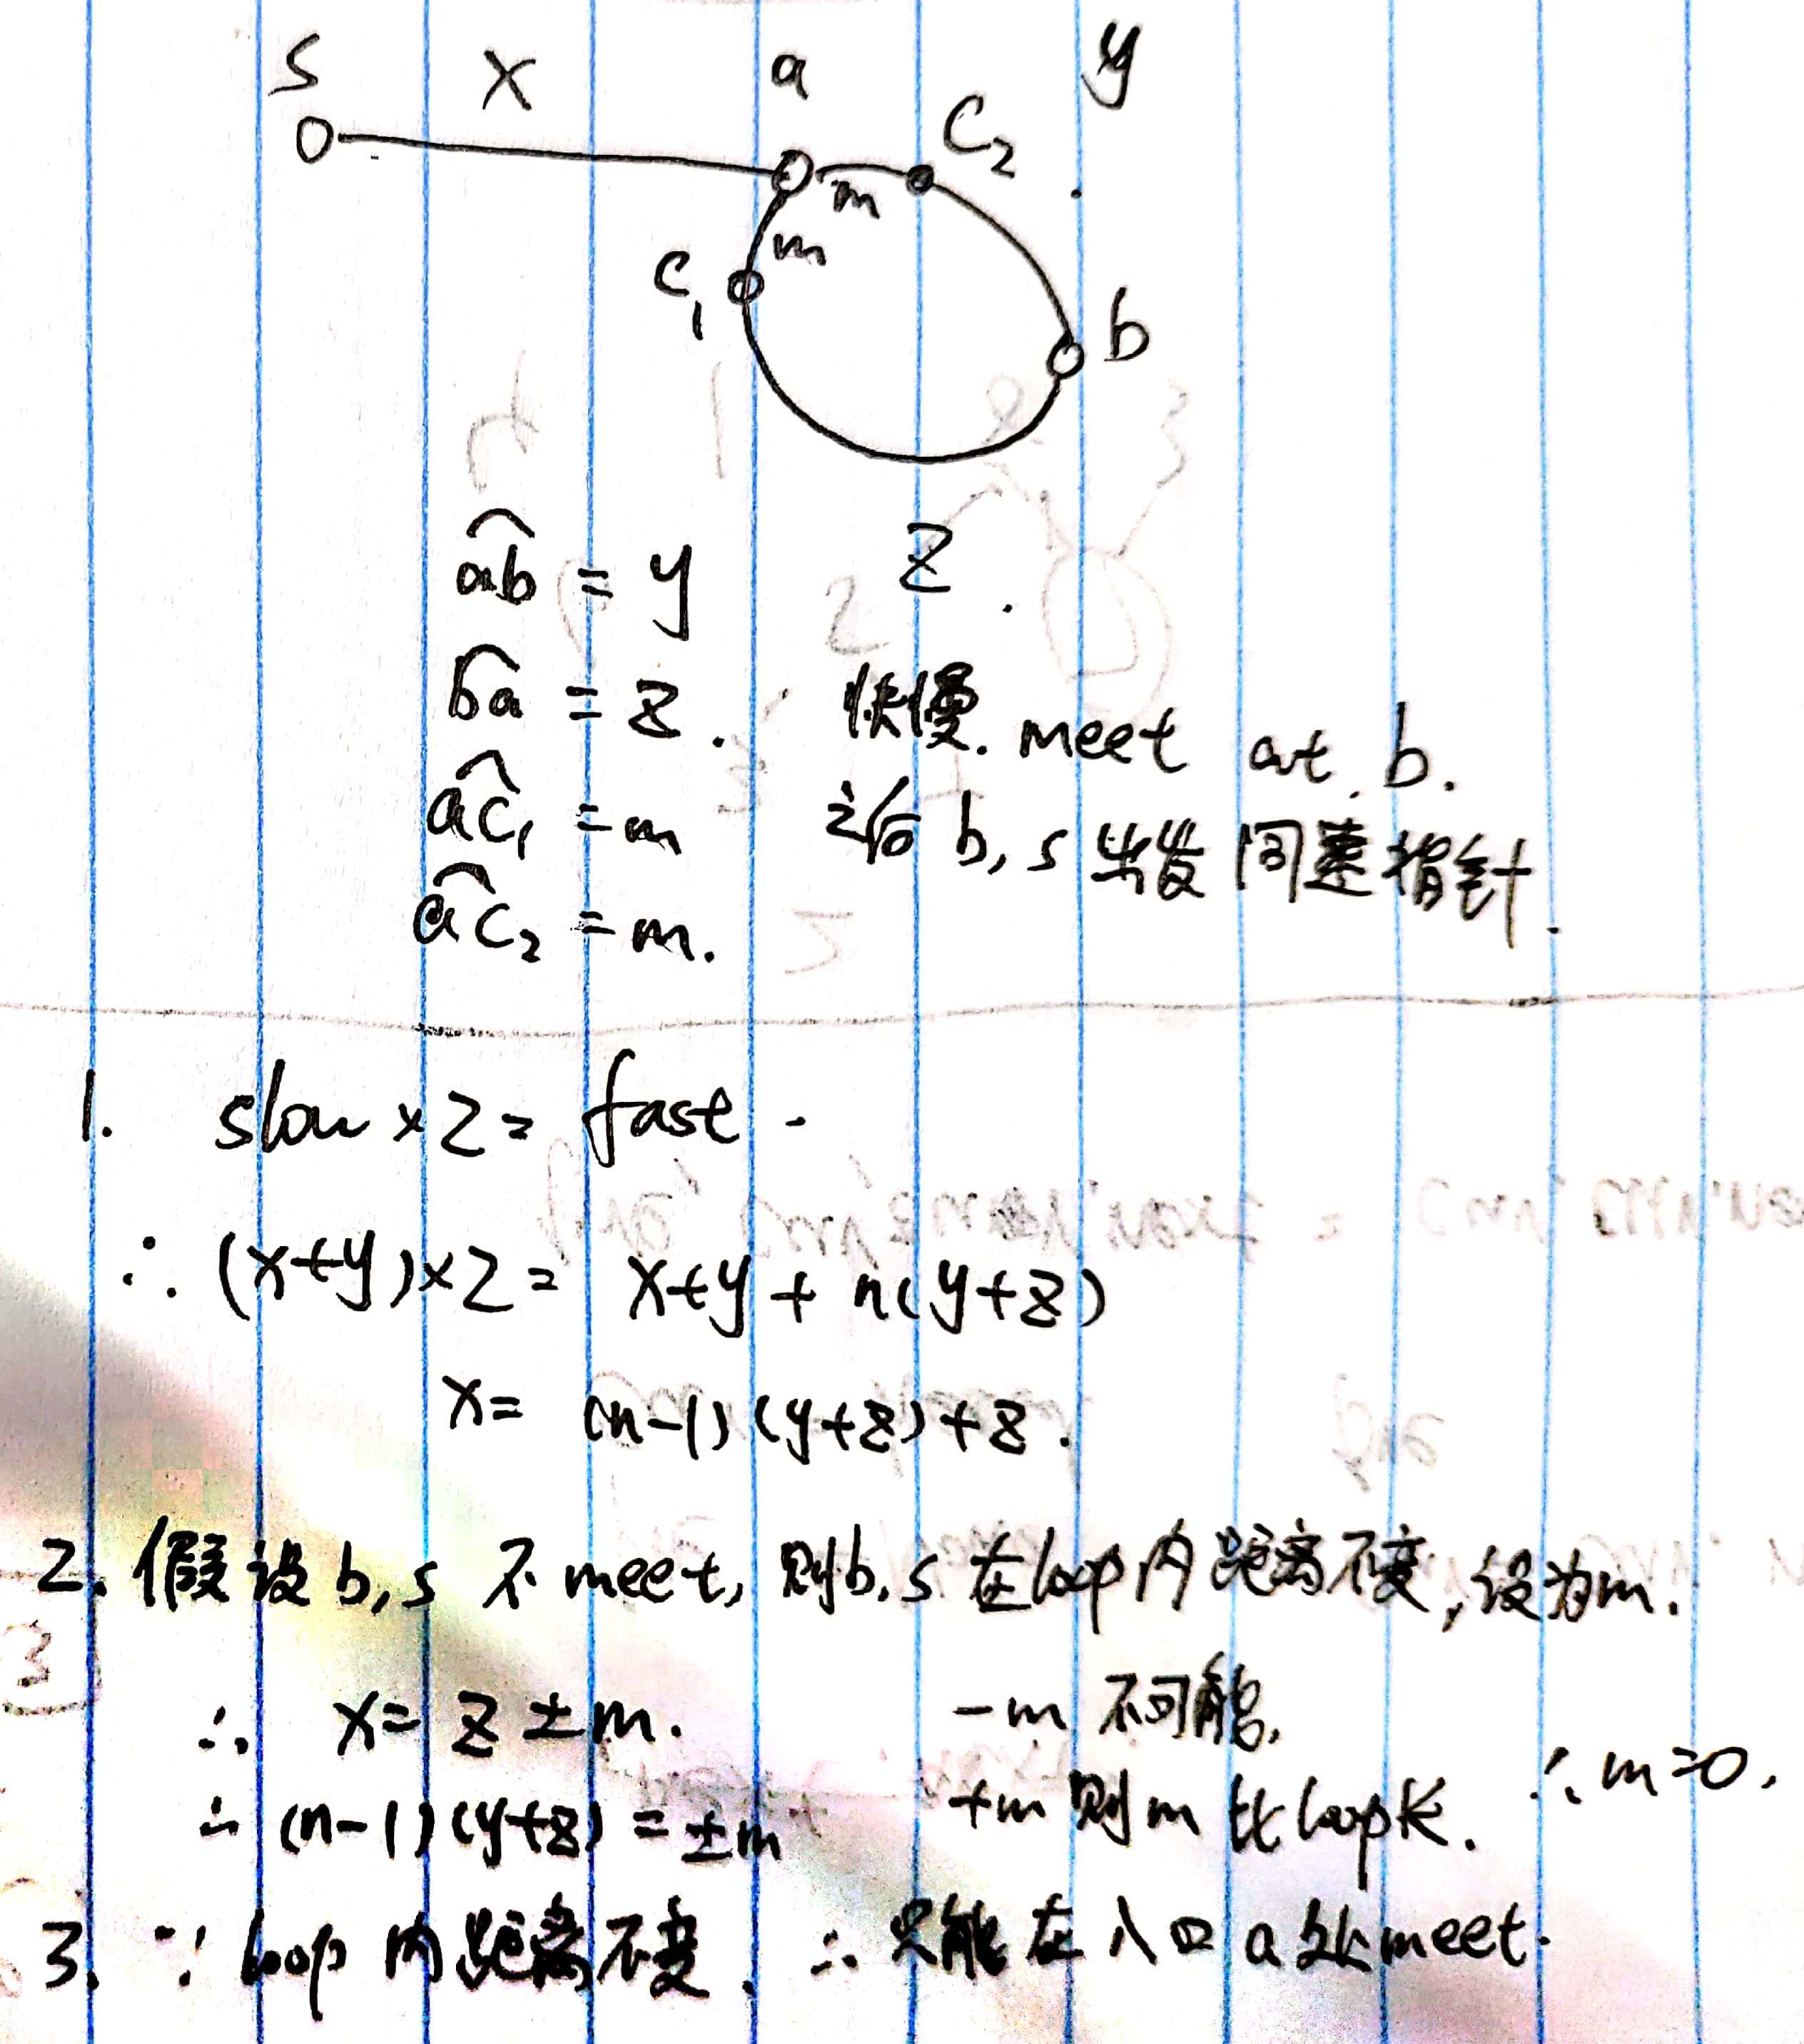 S x a y
C₂
m
m
C₁
b
z
a͡b = y
b͡a = z.
a͡c₁ = m
a͡c₂ = m.
快慢. meet at b.
之后 b, s 出发 同速指针.
1. slow × 2 = fast.
∴ (x+y)×2 = x+y + n(y+z)
x = (n-1)(y+z)+z.
2. 假设 b,s 不 meet, 则 b,s 在 loop 内 距离不变, 设为m.
∴ x = z ± m. -m 不可能,
∴ (n-1)(y+z) = ±m +m 则 m 比 loop长. ∴ m=0.
3. ∵ loop 内 距离不变. ∴ 只能 在 入口 a 处 meet.